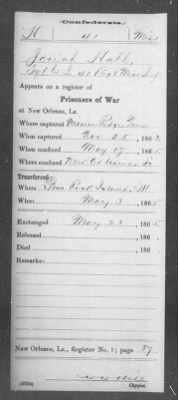 Confederate.
H 41 Miss.
Josiah Hall
Sgt Co. I. 41 Regt Miss Inf.
Appears on a register of
Prisoners of War
at New Orleans, La.
Where captured Mission Ridge Tenn
When captured Nov 25, 1863.
When confined May 17, 1865.
Where confined New Orleans La
Transferred:
Where From Rock Island, Ill
When May 3, 1865.
Exchanged May 23, 1865.
Released , 186 .
Died , 186 .
Remarks:
New Orleans, La., Register No. 1; page 87
Copyist.